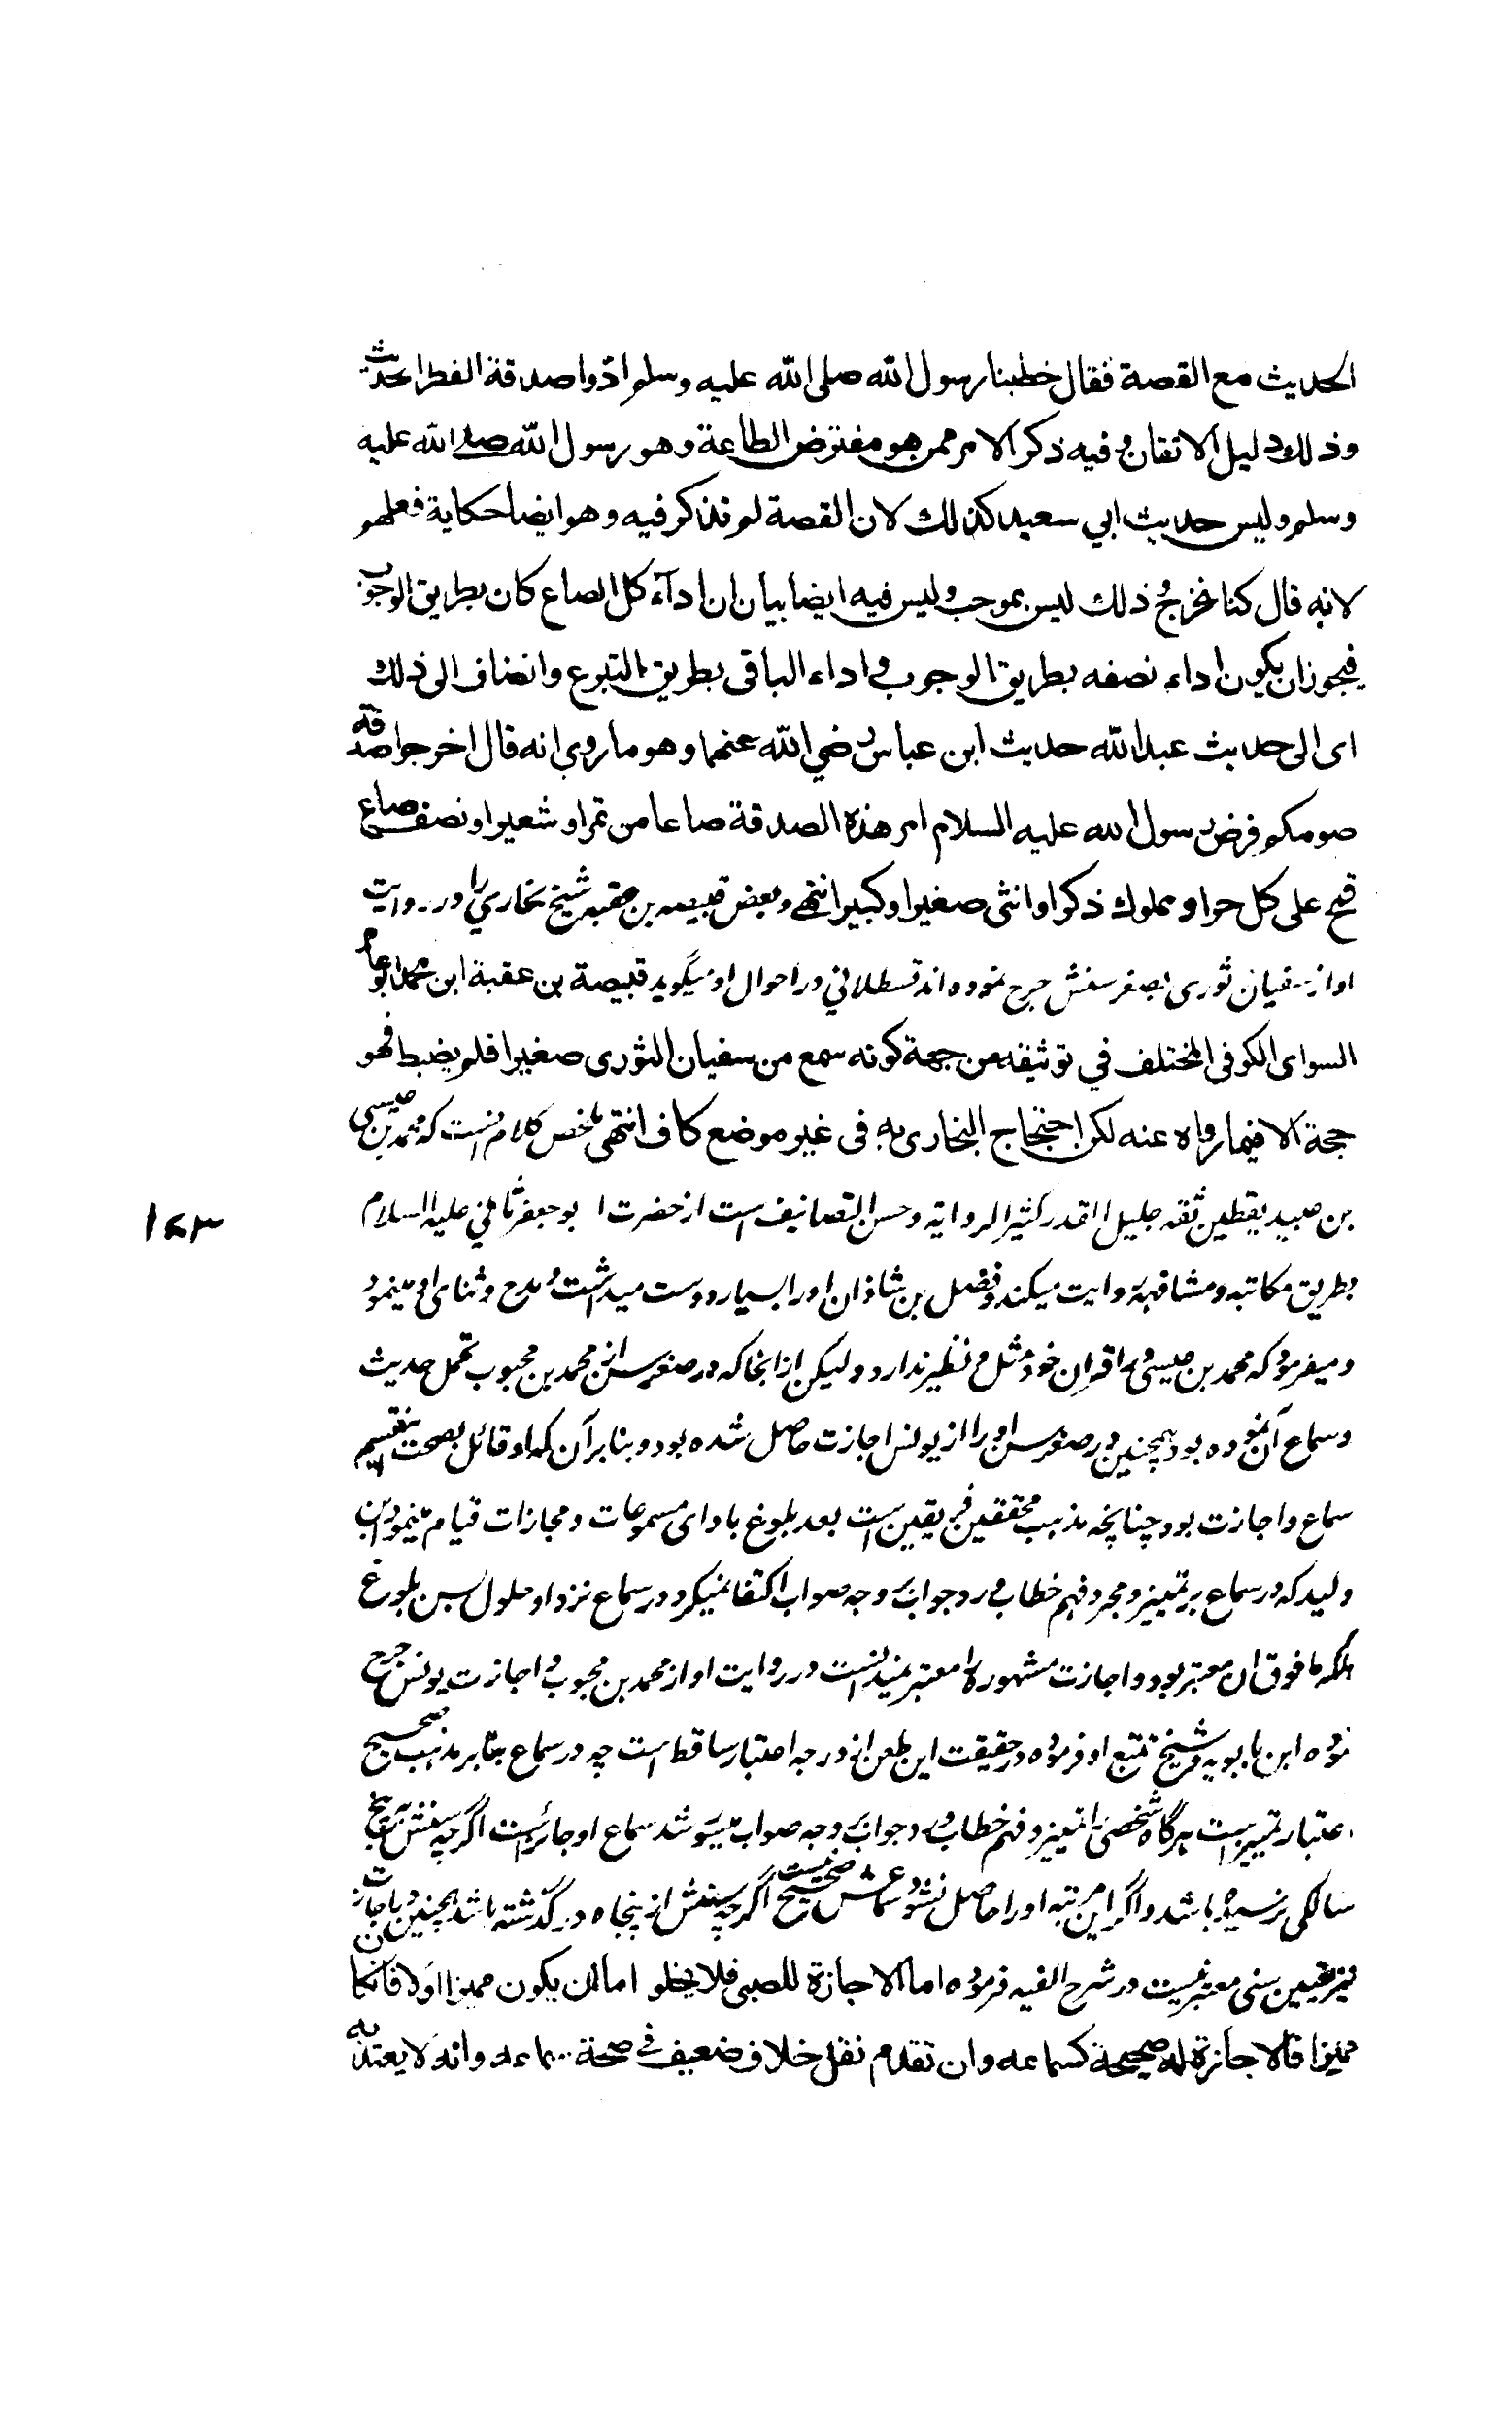 الحديث مع القصة فقال خطبنا رسول الله صلى الله عليه وسلم ادوا صدقة الفطر الحديث
وذلك دليل الاتقان وفيه ذكر الامر ممن هو مفترض الطاعة وهو رسول الله صلى الله عليه
وسلم وليس حديث ابي سعيد كذلك لان القصة لم تذكر فيه وهو ايضا حكاية فعلهم
لانه قال كنا نخرج وذلك ليس بموجب وليس فيه ايضا بيان ان ادآء كل الصاع كان بطريق الوجوب
فيجوز ان يكون اداء نصفه بطريق الوجوب واداء الباقى بطريق التبرع وانضاف الى ذلك
اى الى حديث عبد الله حديث ابن عباس رضي الله عنهما وهو ما روي انه قال اخرجوا صدقة
صومكم فرض رسول الله عليه السلام امر هذه الصدقة صاعا من تمر او شعير او نصف صاع
قمح على كل حر او مملوك ذكر او انثى صغير او كبير انتهى وبعض قبيصه بن عقبه شيخ بخاري را در روايت
او از سفيان ثورى بصغر سنش جرح نموده اند قسطلاني در احوال او ميگويد قبيصة بن عقبة ابن محمد ابو عامر
السواى الكوفى المختلف في توثيقه من جهة كونه سمع من سفيان الثورى صغيرا فلم يضبط فهو
حجة الا فيما رواه عنه لكن احتجاج البخارى به فى غير موضع كاف انتهى ملخص كلام اينست كه محمد بن عيسى
بن عبيد يقطين ثقه جليل القدر كثير الرواية وحسن التصانيف است از حضرت ابو جعفر ثاني عليه السلام
۱۴۳
بطريق مكاتبه ومشافهه روايت ميكند وفضل بن شاذان او را بسيار دوست ميداشت ومدح وثناى او مينمود
وميفرمود كه محمد بن عيسى در اقران خود مثل ونظير ندارد وليكن از انجا كه در صغر سن از محمد بن محبوب تحمل حديث
وسماع آن نموده بود همچنين در صغر سن او را از يونس اجازت حاصل شده بود وبنابر آن كه او قائل بصحت اينقسم
سماع واجازت بود چنانچه مذهب محققين فريقين است بعد بلوغ باداى مسموعات ومجازات قيام مينمود ابن
وليد كه در سماع بر تميز ومجرد فهم خطاب ورد جواب بر وجه صواب اكتفا نميكرد ودر سماع نزد او حلول سن بلوغ
بلكه ما فوق ان معتبر بود واجازت مشهوره را معتبر نميدانست در روايت او از محمد بن محبوب واجازت يونس جرح
نموده ابن بابويه وشيخ تتبع او فرموده در حقيقت اين طعن از درجه اعتبار ساقط است چه در سماع بنا بر مذهب صحيح
اعتبار تميز است هرگاه شخصى را تميز وفهم خطاب ورد جواب بر وجه صواب ميسر شد سماع او جائز است اگرچه سنش به پنج
سالگى نرسيده باشد واگر اين مرتبه او را حاصل نشود سماعش صحيح نيست اگرچه سنش از پنجاه در گذشته باشد همچنين در اجازت
نيز تعيين سنى معتبر نيست در شرح الفيه فرموده اما الاجازة للصبى فلا يخلو اما ان يكون مميزا اولا فان كان
مميزا فالاجازة له صحيحة كسماعه وان تقدم نقل خلاف ضعيف فى صحة سماعه وانه لا يعتد به